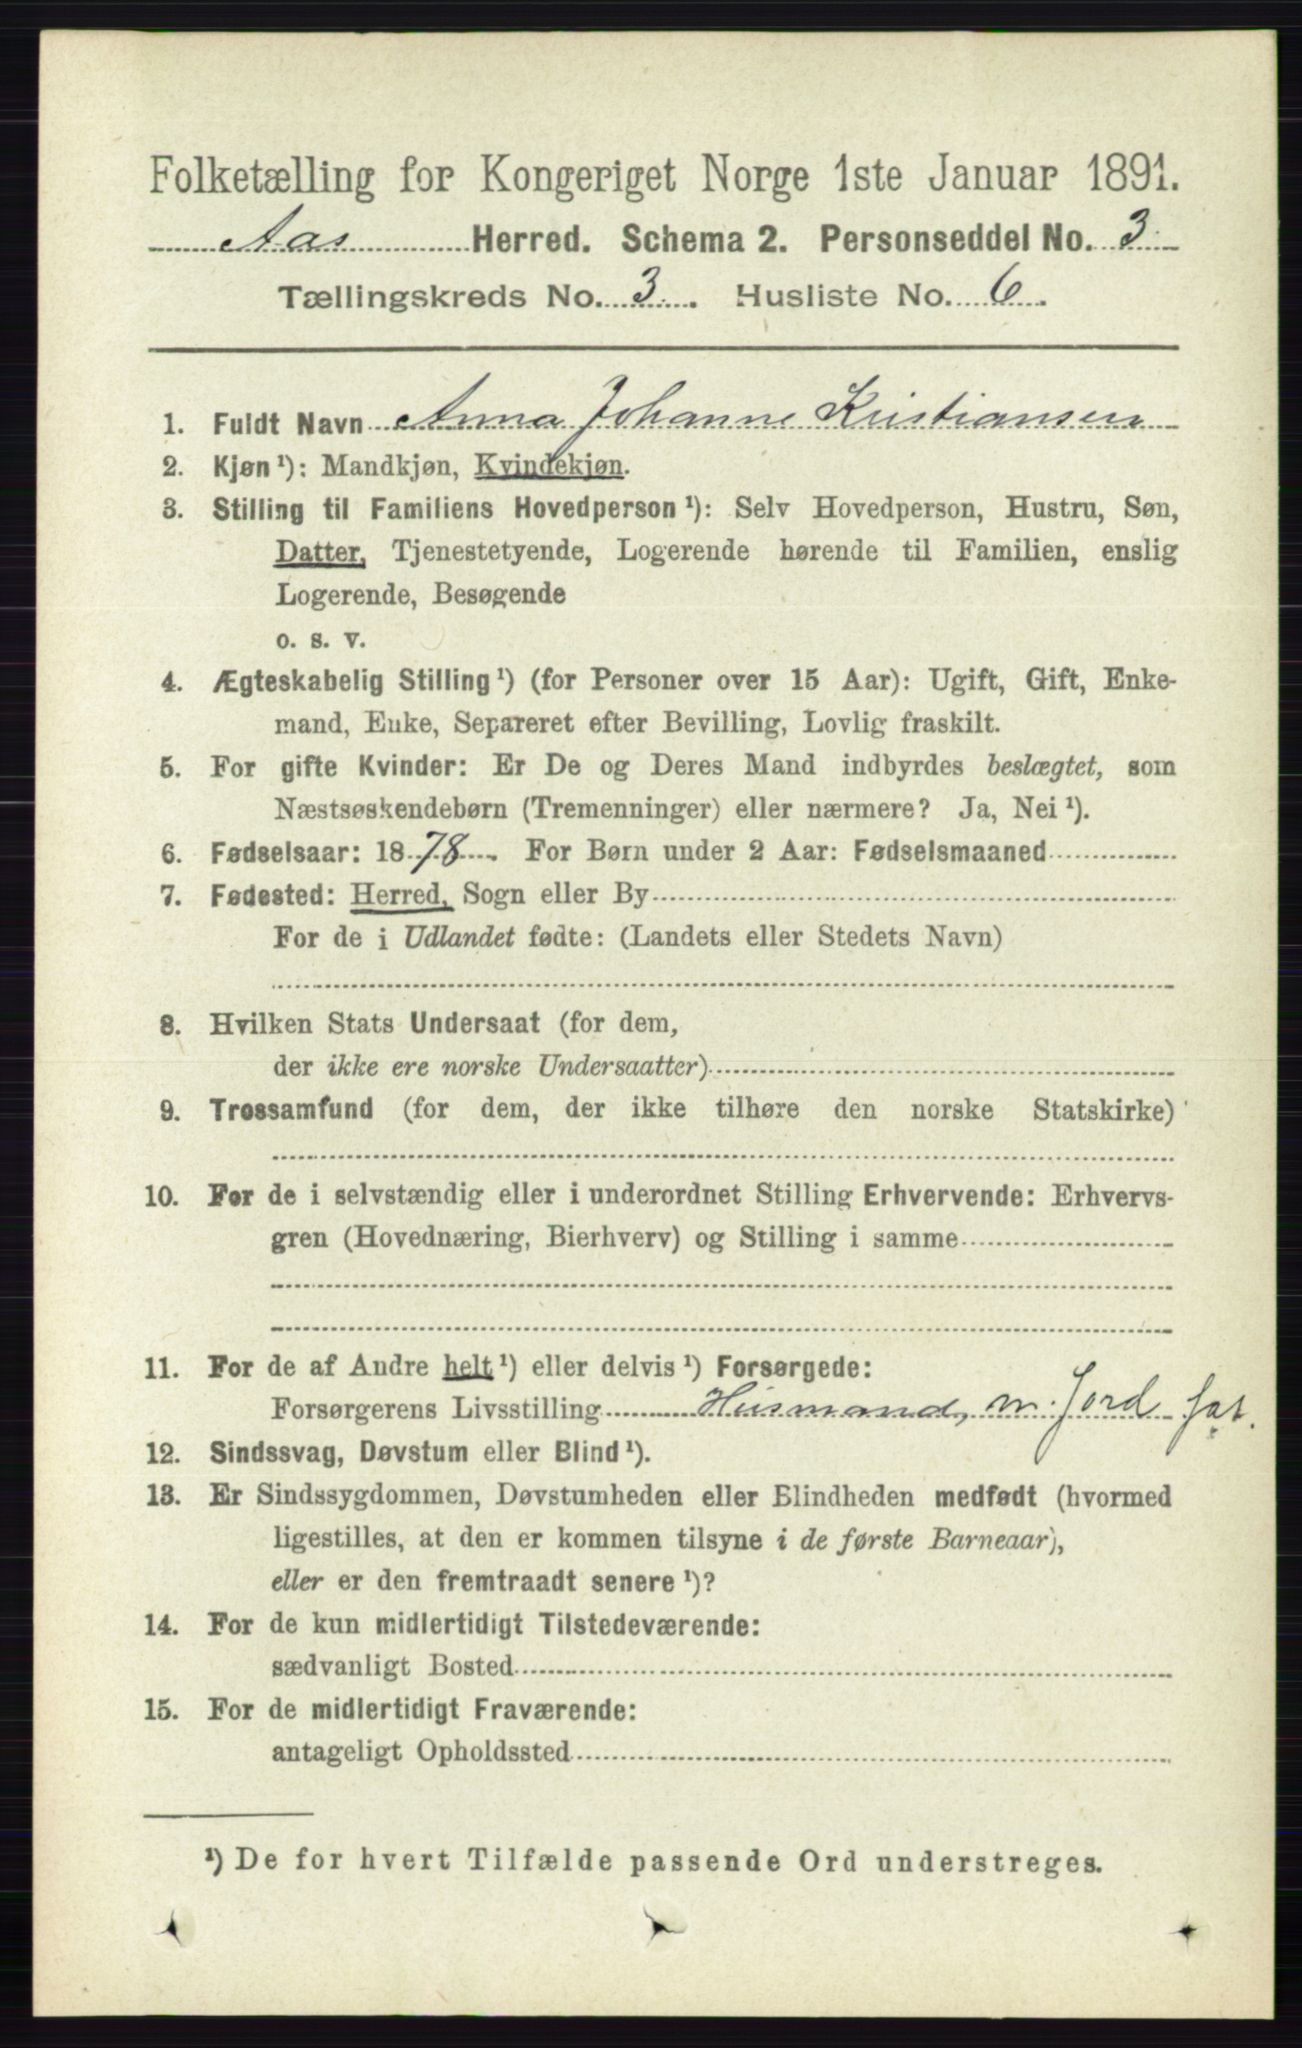 Folketælling for Kongeriget Norge 1ste Januar 1891.
Aas Herred. Schema 2. Personseddel No. 3
Tællingskreds No. 3. Husliste No. 6.
1. Fuldt Navn Anna Johanne Kristiansen
2. Kjøn¹): Mandkjøn, Kvindekjøn.
3. Stilling til Familiens Hovedperson¹): Selv Hovedperson, Hustru, Søn,
Datter, Tjenestetyende, Logerende hørende til Familien, enslig
Logerende, Besøgende
o. s. v.
4. Ægteskabelig Stilling¹) (for Personer over 15 Aar): Ugift, Gift, Enke-
mand, Enke, Separeret efter Bevilling, Lovlig fraskilt.
5. For gifte Kvinder: Er De og Deres Mand indbyrdes beslægtet, som
Næstsøskendebørn (Tremenninger) eller nærmere? Ja, Nei¹).
6. Fødselsaar: 1878. For Børn under 2 Aar: Fødselsmaaned
7. Fødested: Herred, Sogn eller By
For de i Udlandet fødte: (Landets eller Stedets Navn)
8. Hvilken Stats Undersaat (for dem,
der ikke ere norske Undersaatter)
9. Trossamfund (for dem, der ikke tilhøre den norske Statskirke)
10. For de i selvstændig eller i underordnet Stilling Erhvervende: Erhvervs-
gren (Hovednæring, Bierhverv) og Stilling i samme
11. For de af Andre helt¹) eller delvis¹) Forsørgede:
Forsørgerens Livsstilling Husmand, m. Jord
12. Sindssvag, Døvstum eller Blind¹).
13. Er Sindssygdommen, Døvstumheden eller Blindheden medfødt (hvormed
ligestilles, at den er kommen tilsyne i de første Barneaar),
eller er den fremtraadt senere¹)?
14. For de kun midlertidigt Tilstedeværende:
sædvanligt Bosted
15. For de midlertidigt Fraværende:
antageligt Opholdssted
¹) De for hvert Tilfælde passende Ord understreges.